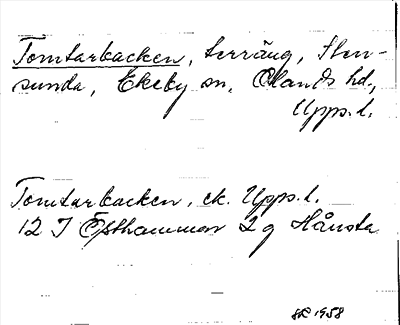 Tomtarbacken, terräng, Sten-
sunda, Ekeby sn, Olands hd,
Upps. l.
Tomtarbacken, ek. Upps. l.
12 I Östhammar 2 g Hånsta
1958